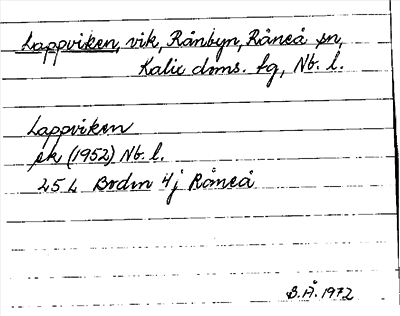 Lappviken, vik, Rånbyn, Råneå sn,
Kalix doms. fg, Nb. l.
Lappviken
ek (1952) Nb. l.
25 L Boden 4j Råneå
B.Å. 1972